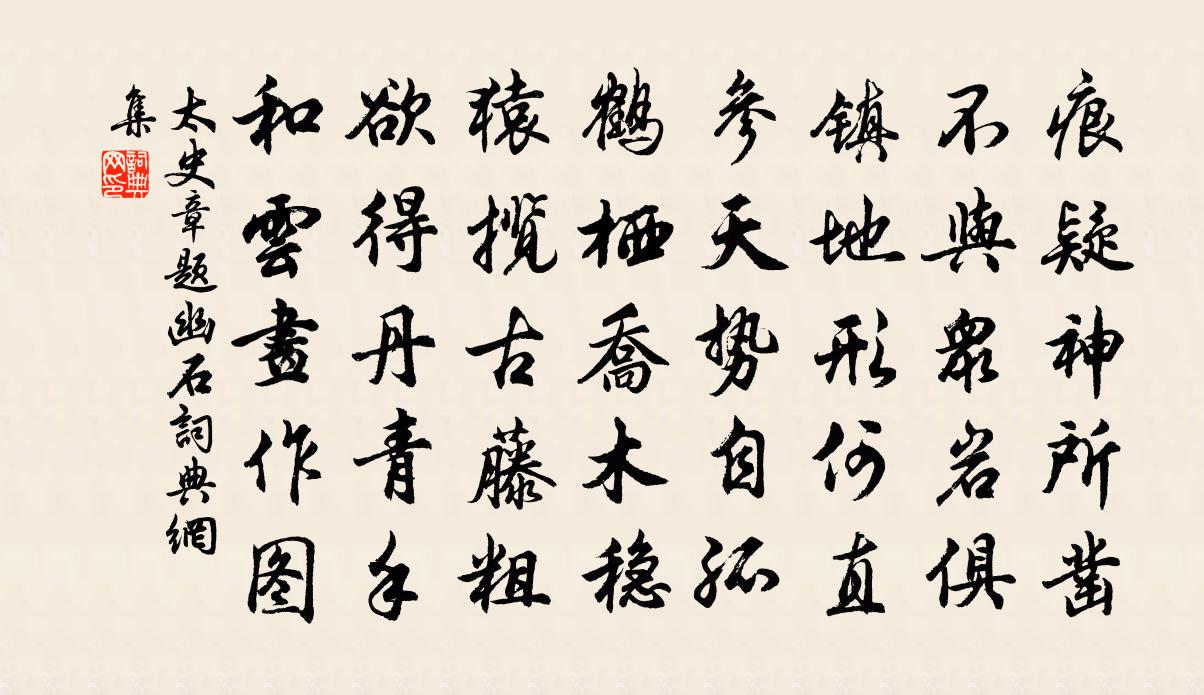 痕疑神所凿
不與衆岩俱
镇地形何直
參天势自孤
鶴栖喬木稳
猿揽古藤粗
欲得丹青手
和雲畫作图
太史章题幽石詞典網
集
詞典
网印